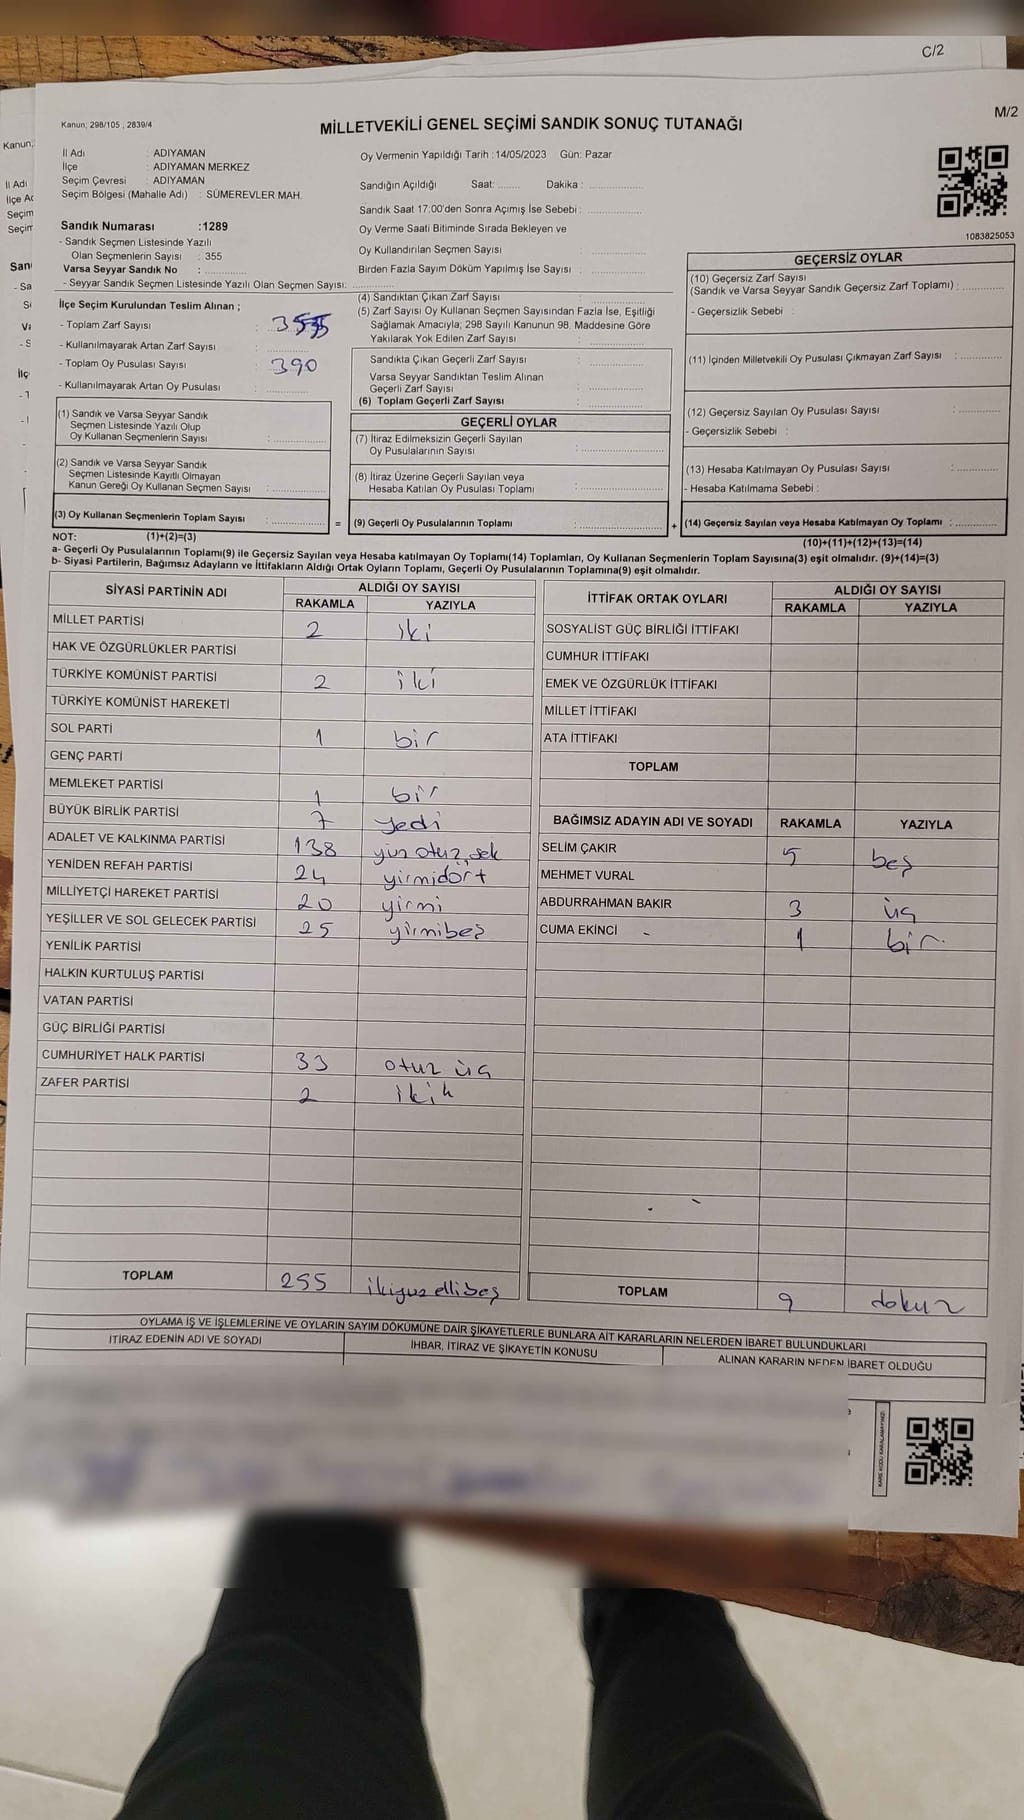 C/2
M/2
Kanun; 298/105 , 2839/4
MİLLETVEKİLİ GENEL SEÇİMİ SANDIK SONUÇ TUTANAĞI
İl Adı : ADIYAMAN
İlçe : ADIYAMAN MERKEZ
Seçim Çevresi : ADIYAMAN
Seçim Bölgesi (Mahalle Adı) : SÜMEREVLER MAH.
Sandık Numarası :1289
- Sandık Seçmen Listesinde Yazılı
Olan Seçmenlerin Sayısı : 355
Varsa Seyyar Sandık No :
- Seyyar Sandık Seçmen Listesinde Yazılı Olan Seçmen Sayısı:
İlçe Seçim Kurulundan Teslim Alınan ;
- Toplam Zarf Sayısı : 355
- Kullanılmayarak Artan Zarf Sayısı :
- Toplam Oy Pusulası Sayısı : 390
- Kullanılmayarak Artan Oy Pusulası :
(1) Sandık ve Varsa Seyyar Sandık
Seçmen Listesinde Yazılı Olup
Oy Kullanan Seçmenlerin Sayısı :
(2) Sandık ve Varsa Seyyar Sandık
Seçmen Listesinde Kayıtlı Olmayan
Kanun Gereği Oy Kullanan Seçmen Sayısı :
(3) Oy Kullanan Seçmenlerin Toplam Sayısı :
(1)+(2)=(3)
Oy Vermenin Yapıldığı Tarih :14/05/2023 Gün: Pazar
Sandığın Açıldığı Saat: Dakika :
Sandık Saat 17:00'den Sonra Açımış İse Sebebi :
Oy Verme Saati Bitiminde Sırada Bekleyen ve
Oy Kullandırılan Seçmen Sayısı :
Birden Fazla Sayım Döküm Yapılmış İse Sayısı :
(4) Sandıktan Çıkan Zarf Sayısı :
(5) Zarf Sayısı Oy Kullanan Seçmen Sayısından Fazla İse, Eşitliği
Sağlamak Amacıyla; 298 Sayılı Kanunun 98. Maddesine Göre
Yakılarak Yok Edilen Zarf Sayısı :
Sandıkta Çıkan Geçerli Zarf Sayısı :
Varsa Seyyar Sandıktan Teslim Alınan
Geçerli Zarf Sayısı :
(6) Toplam Geçerli Zarf Sayısı :
GEÇERLİ OYLAR
(7) İtiraz Edilmeksizin Geçerli Sayılan
Oy Pusulalarının Sayısı :
(8) İtiraz Üzerine Geçerli Sayılan veya
Hesaba Katılan Oy Pusulası Toplamı :
= (9) Geçerli Oy Pusulalarının Toplamı :
1083825053
GEÇERSİZ OYLAR
(10) Geçersiz Zarf Sayısı
(Sandık ve Varsa Seyyar Sandık Geçersiz Zarf Toplamı) :
- Geçersizlik Sebebi :
(11) İçinden Milletvekili Oy Pusulası Çıkmayan Zarf Sayısı :
(12) Geçersiz Sayılan Oy Pusulası Sayısı :
- Geçersizlik Sebebi :
(13) Hesaba Katılmayan Oy Pusulası Sayısı :
- Hesaba Katılmama Sebebi :
+ (14) Geçersiz Sayılan veya Hesaba Katılmayan Oy Toplamı :
(10)+(11)+(12)+(13)=(14)
NOT:
a- Geçerli Oy Pusulalarının Toplamı(9) ile Geçersiz Sayılan veya Hesaba katılmayan Oy Toplamı(14) Toplamları, Oy Kullanan Seçmenlerin Toplam Sayısına(3) eşit olmalıdır. (9)+(14)=(3)
b- Siyasi Partilerin, Bağımsız Adayların ve İttifakların Aldığı Ortak Oyların Toplamı, Geçerli Oy Pusulalarının Toplamına(9) eşit olmalıdır.
SİYASİ PARTİNİN ADI ALDIĞI OY SAYISI
RAKAMLA YAZIYLA
MİLLET PARTİSİ 2 iki
HAK VE ÖZGÜRLÜKLER PARTİSİ
TÜRKİYE KOMÜNİST PARTİSİ 2 iki
TÜRKİYE KOMÜNİST HAREKETİ
SOL PARTİ 1 bir
GENÇ PARTİ
MEMLEKET PARTİSİ 1 bir
BÜYÜK BİRLİK PARTİSİ 7 yedi
ADALET VE KALKINMA PARTİSİ 138 yüz otuz sek
YENİDEN REFAH PARTİSİ 24 yirmidört
MİLLİYETÇİ HAREKET PARTİSİ 20 yirmi
YEŞİLLER VE SOL GELECEK PARTİSİ 25 yirmibeş
YENİLİK PARTİSİ
HALKIN KURTULUŞ PARTİSİ
VATAN PARTİSİ
GÜÇ BİRLİĞİ PARTİSİ
CUMHURİYET HALK PARTİSİ 33 otuz üç
ZAFER PARTİSİ 2
TOPLAM 255 ikiyüzellibeş
İTTİFAK ORTAK OYLARI ALDIĞI OY SAYISI
RAKAMLA YAZIYLA
SOSYALİST GÜÇ BİRLİĞİ İTTİFAKI
CUMHUR İTTİFAKI
EMEK VE ÖZGÜRLÜK İTTİFAKI
MİLLET İTTİFAKI
ATA İTTİFAKI
TOPLAM
BAĞIMSIZ ADAYIN ADI VE SOYADI RAKAMLA YAZIYLA
SELİM ÇAKIR 5 beş
MEHMET VURAL
ABDURRAHMAN BAKIR 3 üç
CUMA EKİNCİ 1 bir
TOPLAM 9 dokuz
OYLAMA İŞ VE İŞLEMLERİNE VE OYLARIN SAYIM DÖKÜMÜNE DAİR ŞİKAYETLERLE BUNLARA AİT KARARLARIN NELERDEN İBARET BULUNDUKLARI
İTİRAZ EDENİN ADI VE SOYADI İHBAR, İTİRAZ VE ŞİKAYETİN KONUSU ALINAN KARARIN NEDEN İBARET OLDUĞU
KARE KODU KARALAMAYINIZ!